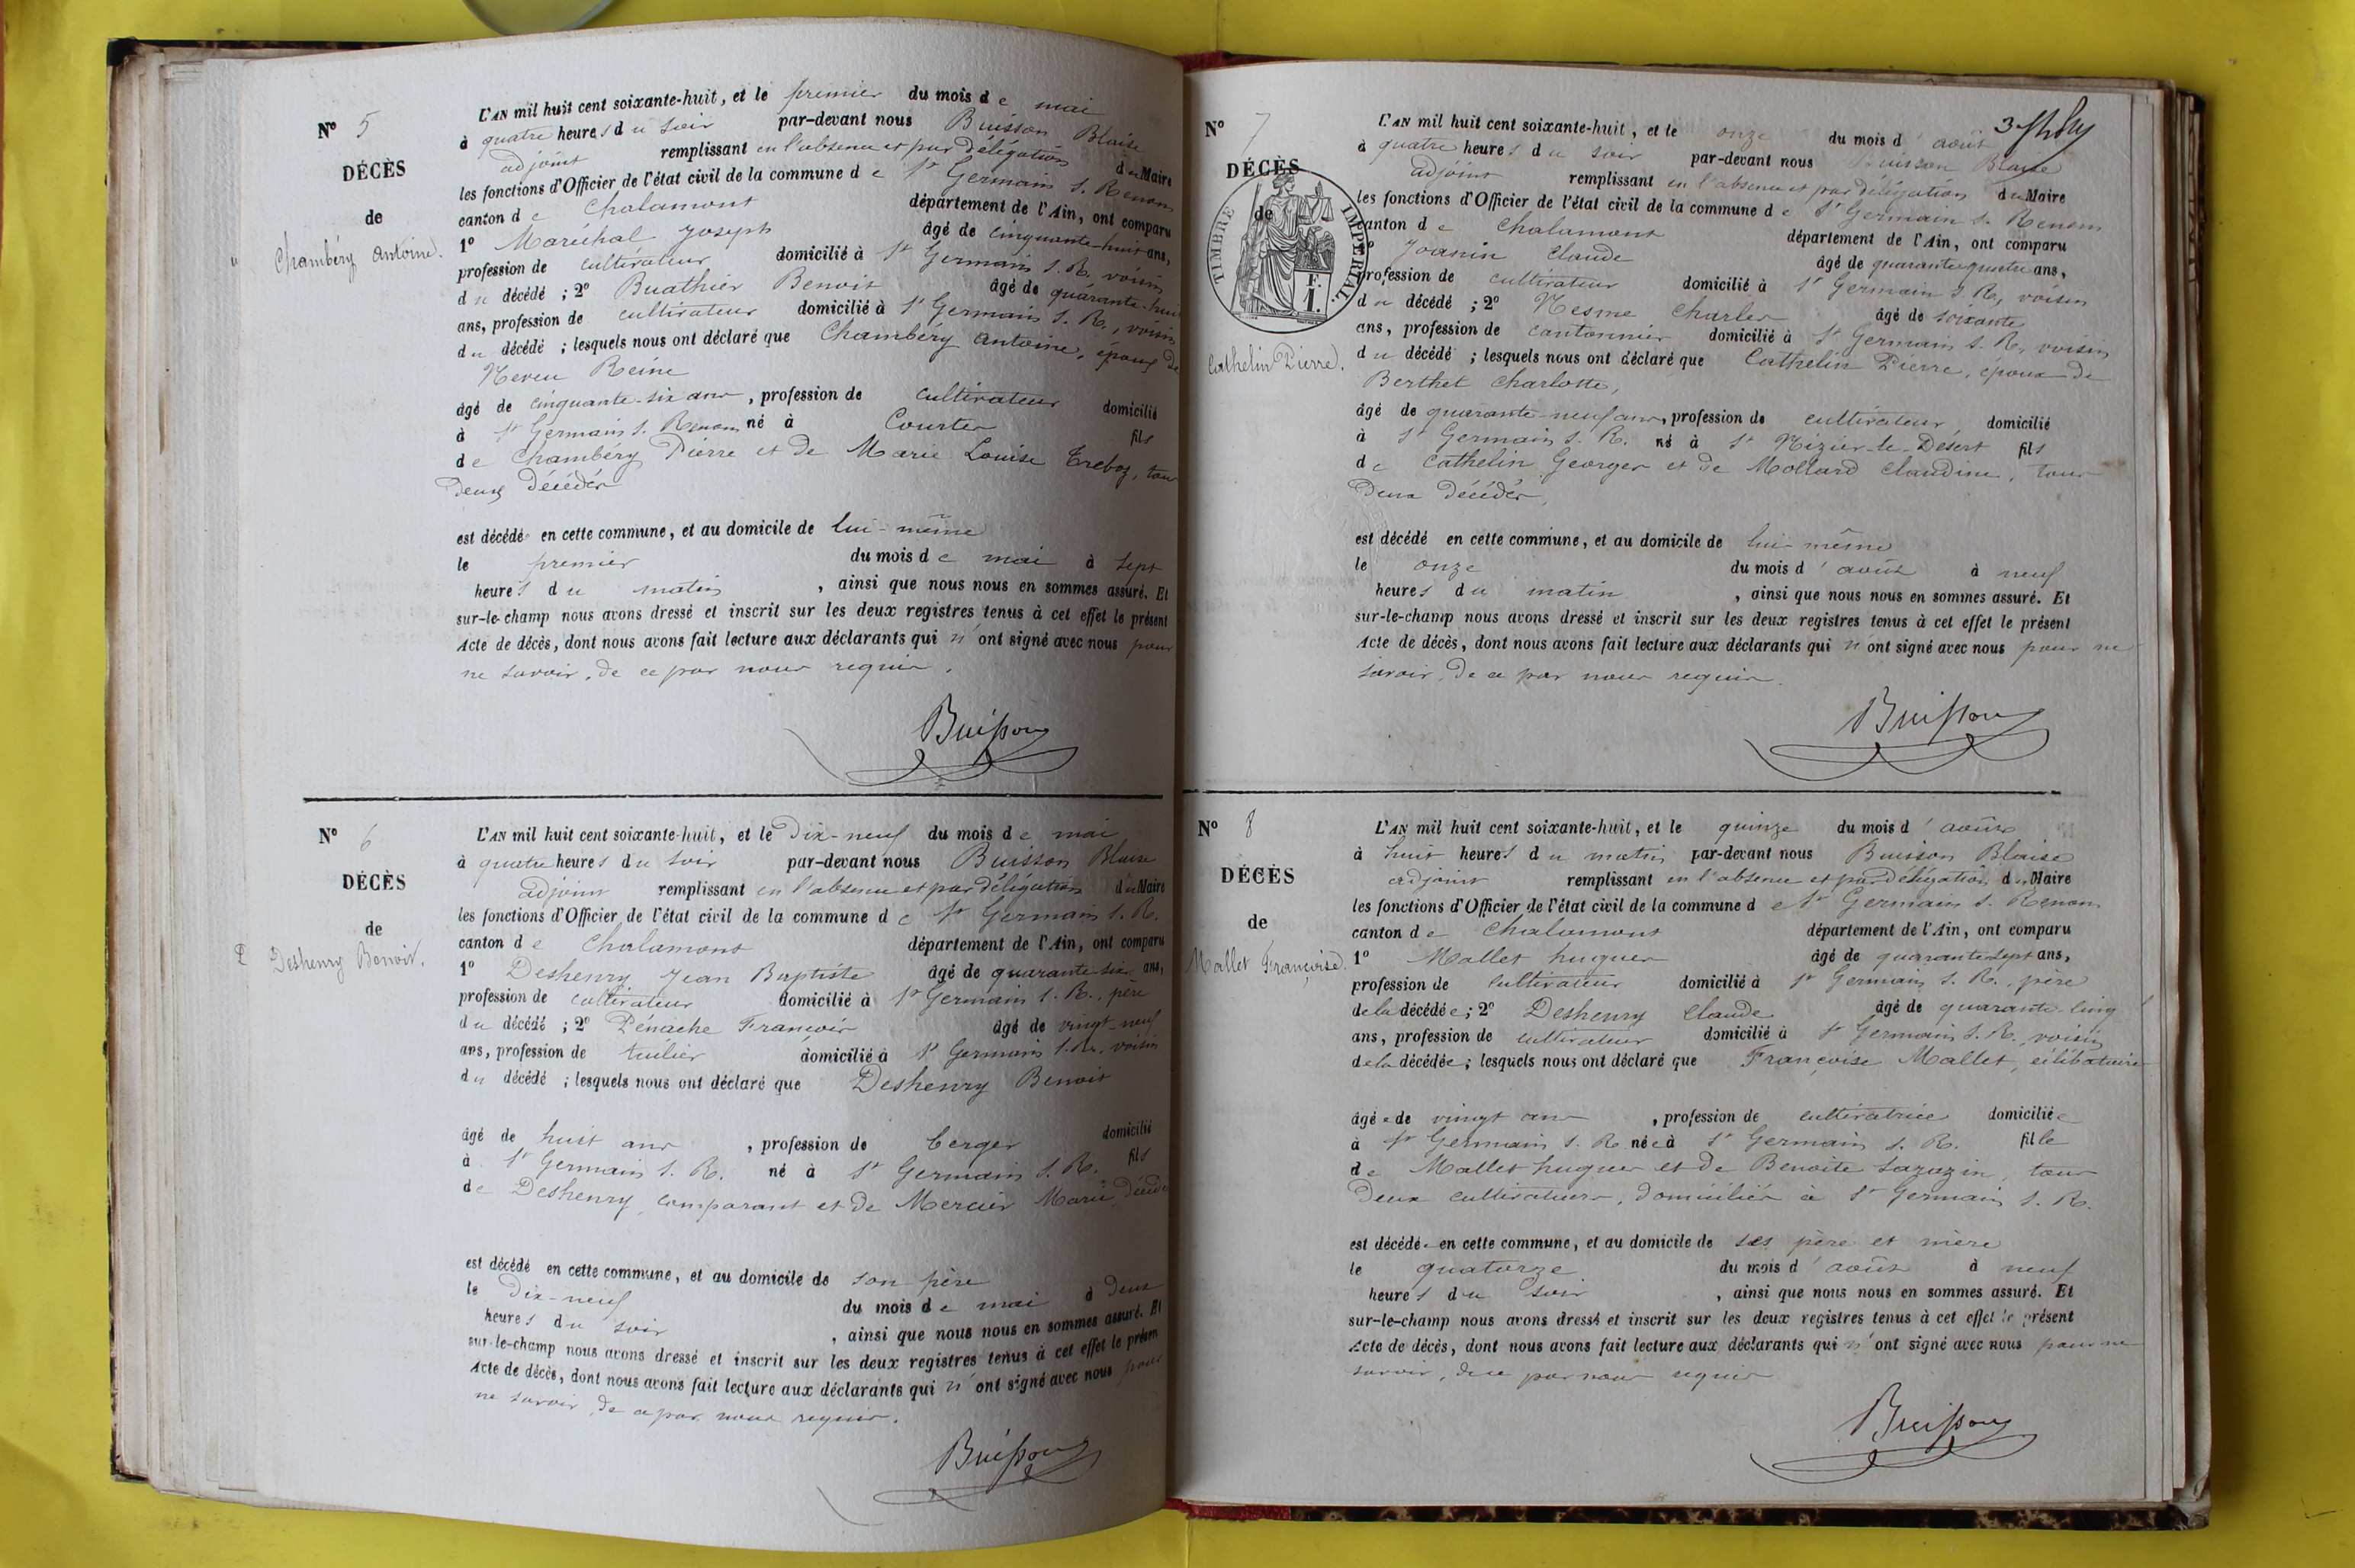 N° 5
DÉCÈS
de
Chambéry Antoine.
L'AN mil huit cent soixante-huit, et le premier du mois de mai
à quatre heures du soir par-devant nous Buisson Blaise
adjoint remplissant en l'absence et par délégation du Maire
les fonctions d'Officier de l'état civil de la commune de St Germain s. Renom
canton de Chalamont département de l'Ain, ont comparu
1° Maréchal Joseph âgé de cinquante-huit ans,
profession de cultivateur domicilié à St Germain s. R. voisin
du décédé ; 2° Buathier Benoit âgé de quarante-huit
ans, profession de cultivateur domicilié à St Germain s. R., voisin
du décédé ; lesquels nous ont déclaré que Chambéry Antoine, époux de
Neveu Reine
âgé de cinquante-six ans, profession de cultivateur domicilié
à St Germain s. Renom né à Courtes fils
de Chambéry Pierre et de Marie Louise Treboz, tous
deux décédés
est décédé en cette commune, et au domicile de lui-même
le premier du mois de mai à sept
heures du matin, ainsi que nous nous en sommes assuré. Et
sur-le-champ nous avons dressé et inscrit sur les deux registres tenus à cet effet le présent
Acte de décès, dont nous avons fait lecture aux déclarants qui n'ont signé avec nous pour
ne savoir, de ce par nous requis.
Buisson
N° 6
DÉCÈS
de
Deshenry Benoit.
L'AN mil huit cent soixante-huit, et le dix-neuf du mois de mai
à quatre heures du soir par-devant nous Buisson Blaise
adjoint remplissant en l'absence et par délégation du Maire
les fonctions d'Officier de l'état civil de la commune de St Germain s. R.
canton de Chalamont département de l'Ain, ont comparu
1° Deshenry Jean Baptiste âgé de quarante six ans,
profession de cultivateur domicilié à St Germain s. R., père
du décédé ; 2° Pénache François âgé de vingt-neuf
ans, profession de tuilier domicilié à St Germain s. R., voisin
du décédé ; lesquels nous ont déclaré que Deshenry Benoit
âgé de huit ans, profession de berger domicilié
à St Germain s. R. né à St Germain s. R. fils
de Deshenry, comparant et de Mercier Marie, décédée
est décédé en cette commune, et au domicile de son père
le dix-neuf du mois de mai à deux
heures du soir, ainsi que nous nous en sommes assuré. Et
sur-le-champ nous avons dressé et inscrit sur les deux registres tenus à cet effet le présen
Acte de décès, dont nous avons fait lecture aux déclarants qui n'ont signé avec nous pour
ne savoir, de ce par nous requis.
Buisson
N° 7
DÉCÈS
de
TIMBRE IMPERIAL.
F.
1.
Cathelin Pierre.
L'AN mil huit cent soixante-huit, et le onze du mois d'août
à quatre heures du soir par-devant nous Buisson Blaise
adjoint remplissant en l'absence et par délégation du Maire
les fonctions d'Officier de l'état civil de la commune de St Germain s. Renom
canton de Chalamont département de l'Ain, ont comparu
1° Joanin Claude âgé de quarante quatre ans,
profession de cultivateur domicilié à St Germain s. R., voisin
du décédé ; 2° Nesme Charles âgé de soixante
ans, profession de cantonnier domicilié à St Germain s. R., voisin
du décédé ; lesquels nous ont déclaré que Cathelin Pierre, époux de
Berthet Charlotte,
âgé de quarante-neuf ans, profession de cultivateur domicilié
à St Germain s. R. né à St Nizier-le-Désert fils
de Cathelin Georges et de Mollard Claudine, tous
deux décédés,
est décédé en cette commune, et au domicile de lui-même
le onze du mois d'août à neuf
heures du matin, ainsi que nous nous en sommes assuré. Et
sur-le-champ nous avons dressé et inscrit sur les deux registres tenus à cet effet le présent
Acte de décès, dont nous avons fait lecture aux déclarants qui n'ont signé avec nous pour ne
savoir, de ce par nous requis.
Buisson
N° 8
DÉCÈS
de
Mallet Françoise.
L'AN mil huit cent soixante-huit, et le quinze du mois d'août
à huit heures du matin par-devant nous Buisson Blaise
adjoint remplissant en l'absence et par délégation du Maire
les fonctions d'Officier de l'état civil de la commune de St Germain s. Renom
canton de Chalamont département de l'Ain, ont comparu
1° Mallet hugues âgé de quarante sept ans,
profession de cultivateur domicilié à St Germain s. R., père
de la décédée ; 2° Deshenry Claude âgé de quarante-cinq
ans, profession de cultivateur domicilié à St Germain s. R., voisin
de la décédée ; lesquels nous ont déclaré que Françoise Mallet, célibataire
âgée de vingt ans, profession de cultivatrice domiciliée
à St Germain s. R. née à St Germain s. R. fille
de Mallet hugues et de Benoite Sarazin, tous
deux cultivateurs, domiciliés à St Germain s. R.
est décédée en cette commune, et au domicile de ses père et mère
le quatorze du mois d'août à neuf
heures du soir, ainsi que nous nous en sommes assuré. Et
sur-le-champ nous avons dressé et inscrit sur les deux registres tenus à cet effet le présent
Acte de décès, dont nous avons fait lecture aux déclarants qui n'ont signé avec nous pour ne
savoir, de ce par nous requis
Buisson